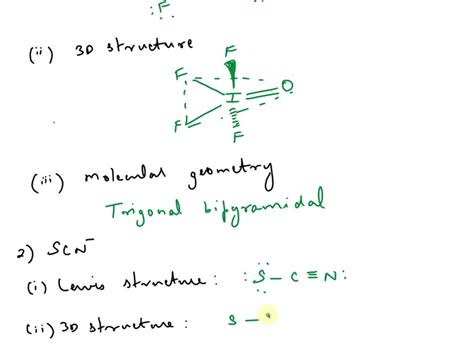 :F:
(ii) 3D structure
F
F
I
O
F
F
(iii) Molecular geometry
Trigonal bipyramidal
2) SCN⁻
(i) Lewis structure : :S̤̈ – C ≡ N:
(ii) 3D structure : S –